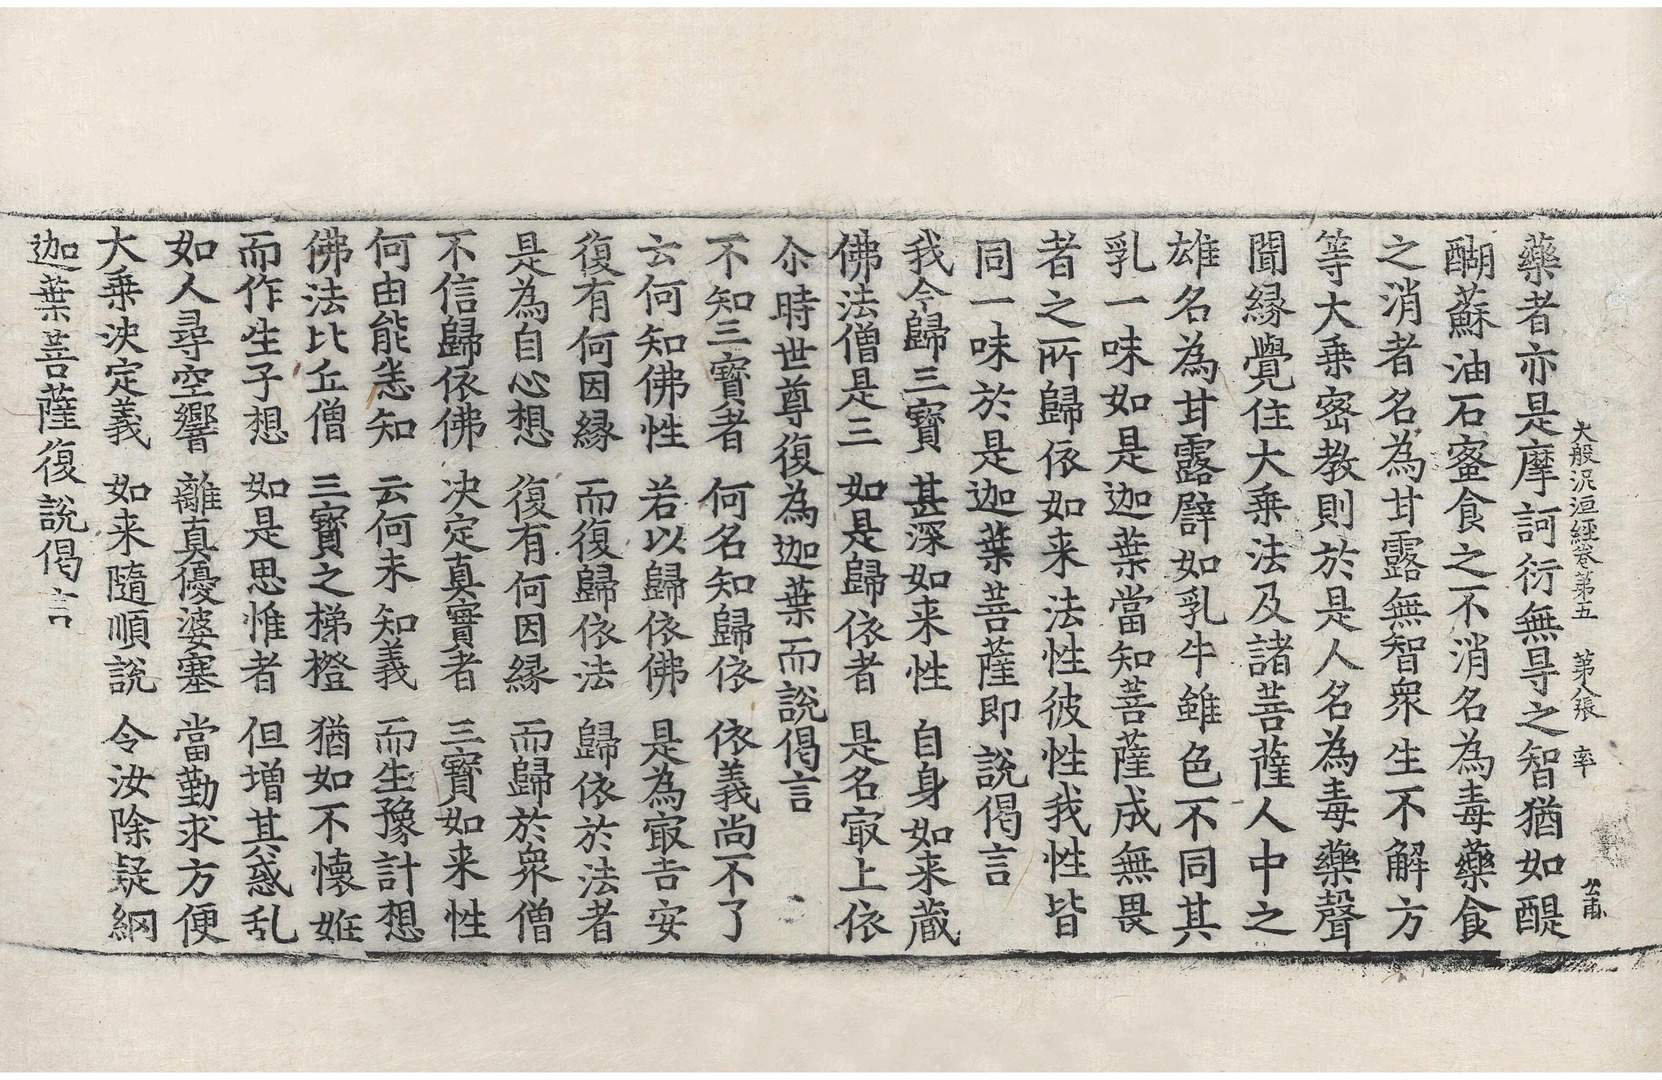 大般泥洹經卷第五 第八張 率
藥者亦是摩訶衍無㝵之智猶如醍
醐蘇油石蜜食之不消名為毒藥食
之消者名為甘露無智衆生不解方
等大乗密教則於是人名為毒藥聲
聞縁覺住大乗法及諸菩薩人中之
雄名為甘露譬如乳牛雖色不同其
乳一味如是迦葉當知菩薩成無畏
者之所歸依如来法性彼性我性皆
同一味於是迦葉菩薩即說偈言
我今歸三寳 甚深如来性 自身如来藏
佛法僧是三 如是歸依者 是名㝡上依
尒時世尊復為迦葉而說偈言
不知三寳者 何名知歸依 依義尚不了
云何知佛性 若以歸依佛 是為㝡吉安
復有何因縁 而復歸依法 歸依於法者
是為自心想 復有何因縁 而歸於衆僧
不信歸依佛 决定真實者 三寳如来性
何由能悉知 云何未知義 而生豫計想
佛法比丘僧 三寳之梯橙 猶如不懷姙
而作生子想 如是思惟者 但增其惑乱
如人尋空響 離真優婆塞 當勤求方便
大乗决定義 如来隨順說 令汝除疑網
迦葉菩薩復說偈言